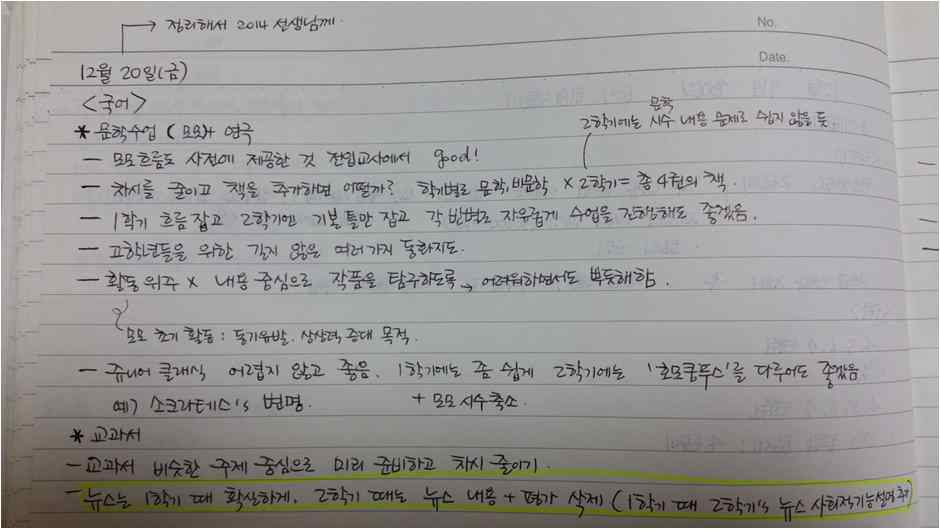 → 정리해서 2014 선생님께.
No.
Date.
12월 20일(금)
<국어>
* 문학수업 (모모)+ 연극
문학
2학기에는 시수 내용 문제로 쉽지 않을 듯
- 모모흐름도 사전에 제공한 것 전입교사에서 good!
- 차시를 줄이고 책을 추가하면 어떨까? 학기별로 문학, 비문학 × 2학기 = 총 4권의 책.
- 1학기 흐름 잡고 2학기엔 기본 틀만 잡고 각 반별로 자유롭게 수업을 진행해도 좋겠음.
- 고학년들을 위한 길지 않은 여러가지 동화지도.
- 활동 위주 × 내용 중심으로 작품을 탐구하도록 → 어려워하면서도 뿌듯해함.
모모 초기 활동 : 동기유발. 상상력 증대 목적.
- 쥬니어 클래식 어렵지 않고 좋음. 1학기에는 좀 쉽게 2학기에는 '호모쿵푸스'를 다루어도 좋겠음
예) 소크라테스's 변명. + 모모 시수 축소.
* 교과서
- 교과서 비슷한 주제 중심으로 미리 준비하고 차시 줄이기.
- 뉴스는 1학기 때 확실하게. 2학기 때는 뉴스 내용 + 평가 삭제 (1학기 때 2학기's 뉴스 사회적기능설명 추가)